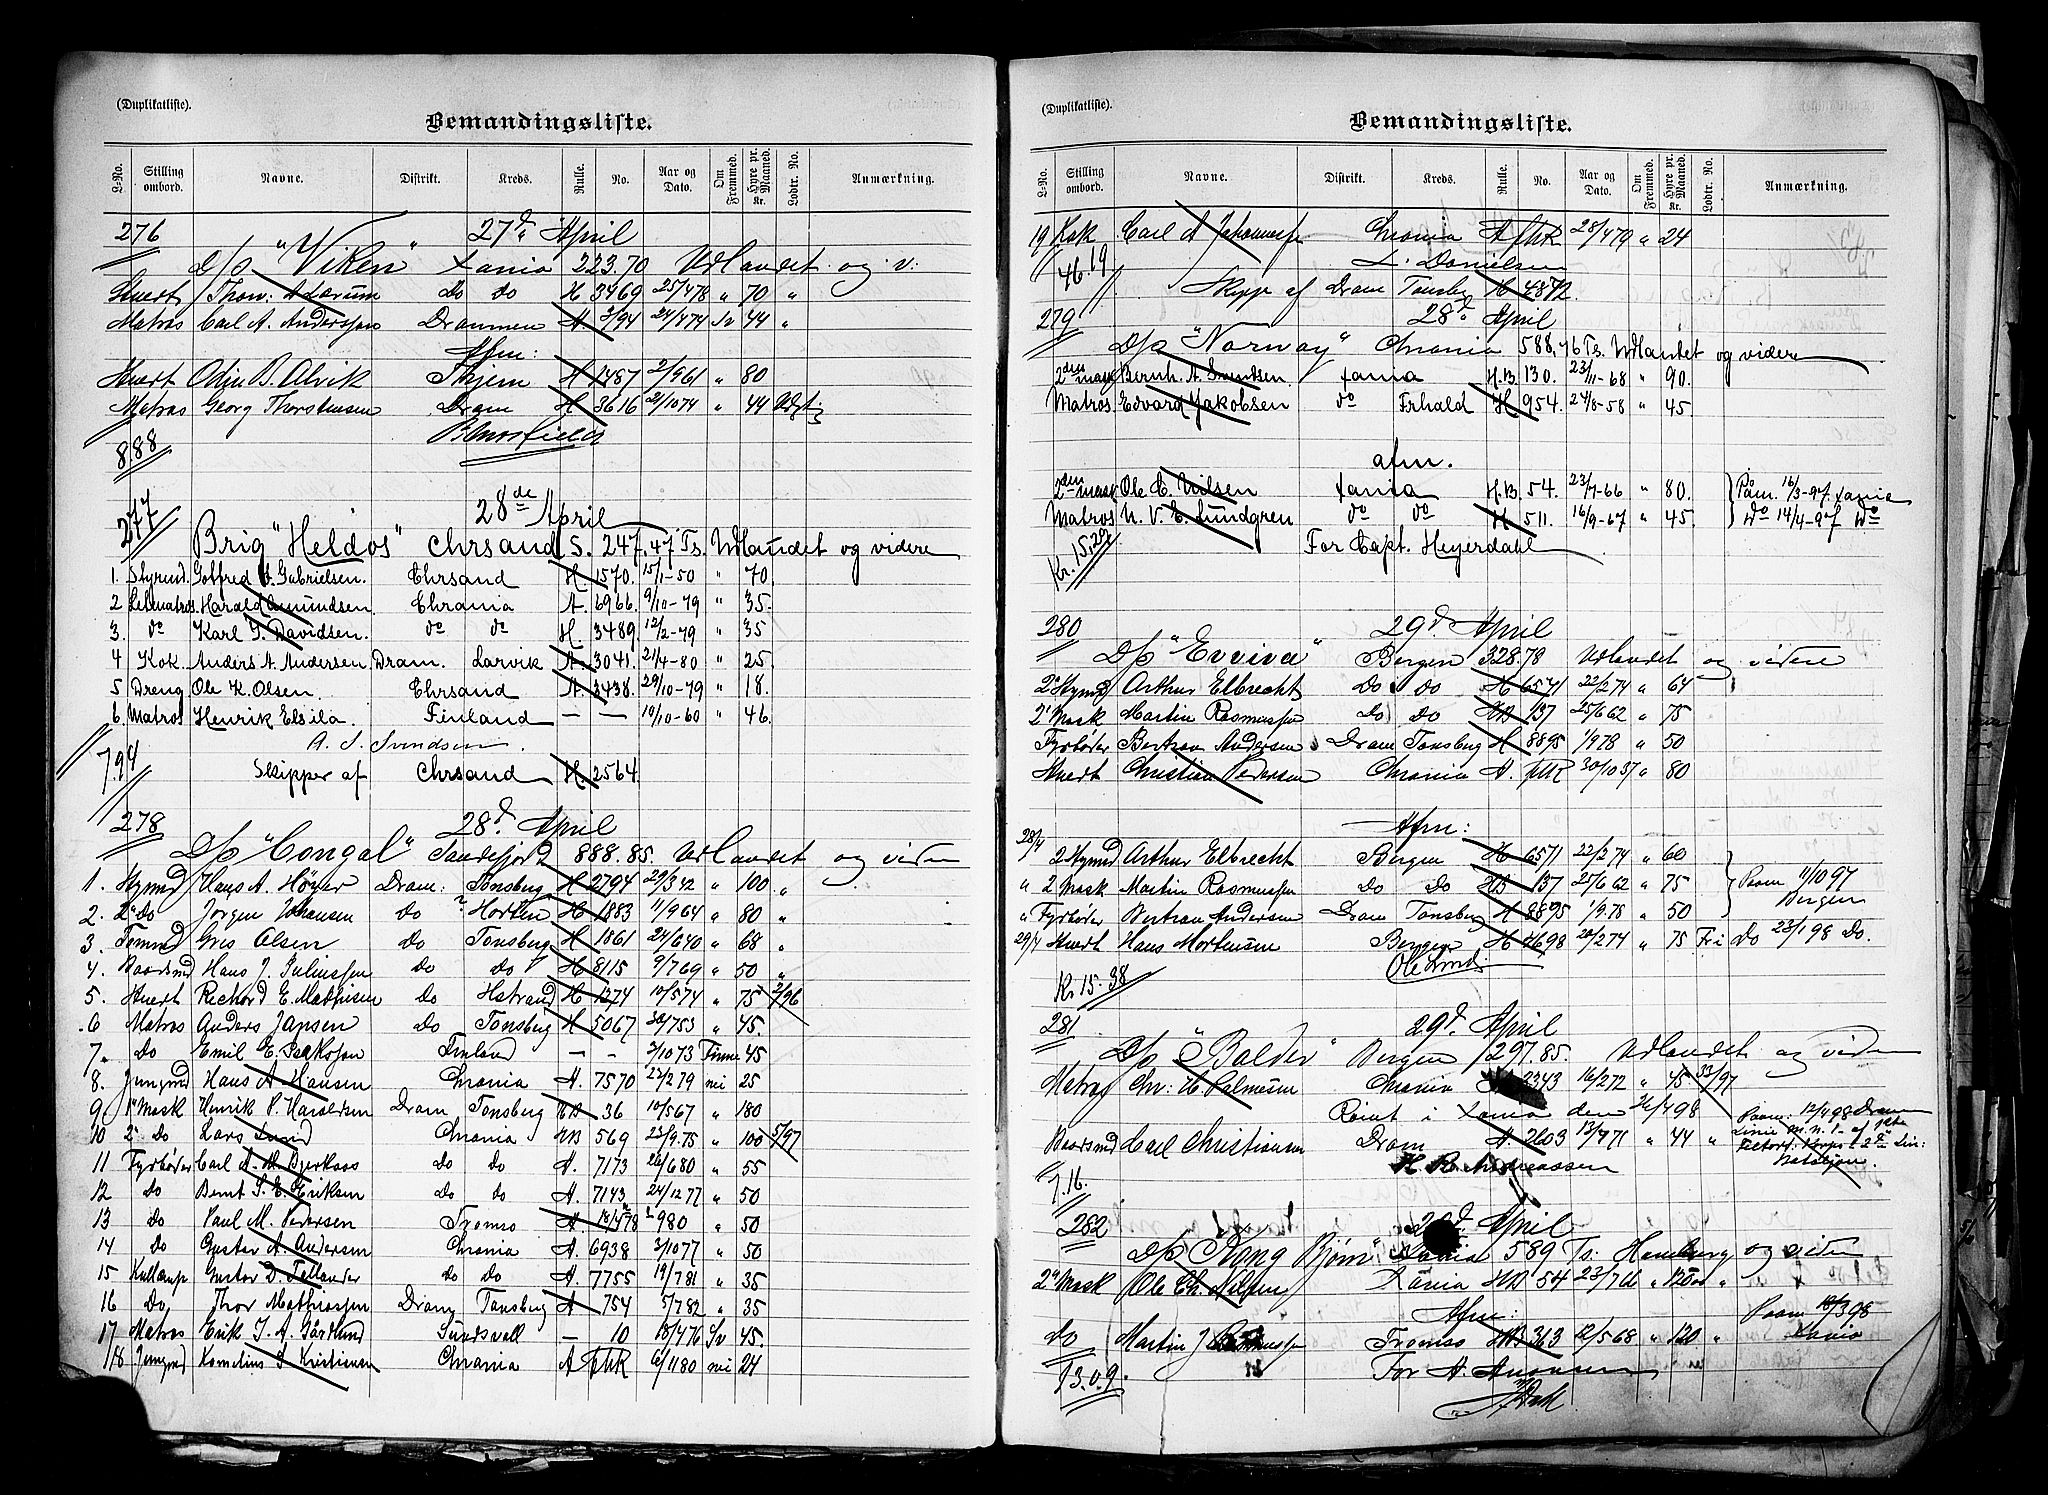 (Duplikatliste).
Bemandingsliste.
L-No. Stilling ombord. Navne. Distrikt. Kreds. Rulle. No. Aar og Dato. Om Fremmed. Hyre pr. Maaned. Kr. Lodtr. No. Anmærkning.
276 27d April
D/s "Viken" Xania 223.70 Udlandet og v:
Stuert Thorv: Do Do H 3469 25/4 78 " 70 "
Matros Carl A. Anderssen Drammen A 3/94 24/4 74 Sv 44 "
Afm:
Stuert Odin B. Alvik Thjem H 1487 2/9 61 " 80
Matros Georg Thorstensen Dram H 3616 2/10 74 " 44
8.88
277 28de April
Brig "Heldos" Chrsand S. 247,47 Ts. Udlandet og videre
1. Styrmd. Gotfred Gabrielsen. Chrsand H. 1570. 15/1-50 " 70.
2 Letmatros. Harald Amundsen. Chrania A. 6966. 9/10-79 " 35.
3. do Karl G. Davidsen. do do H. 3489. 12/2-79 " 35
4 Kok. Anders A. Andersen Dram. Larvik A. 3041. 21/4-80 " 25
5 Dreng Ole K. Olsen. Chrsand A. 3438. 29/10-79 " 18.
6. Matros Henrik Elsila. Finland — — 19/10-60 " 46.
A. S. Svendsen.
7.94 Skipper af Chrsand H. 2564.
278 28d. April
D/s "Congal" Sandefjord 888.85. Udlandet og viden
1. Stymd Hans A. Höyer Dram: Tonsberg H 2794 29/3 42 " 100 "
2. 2' Do Jörgen Johansen Do " Horten H 1883 11/9 64 " 80 "
3. Tømmd Gves Olsen Do Tonsberg H 1861 24/6 40 " 68 "
4. Baadsmd Hans J. Juliussen Do Do H 8115 9/7 69 " 50 "
5. Stuert Richard E. Mathisen Do Hstrand H 1274 10/5 74 " 75 2/96
6 Matros Anders Jansen Do Tonsberg H 5067 30/7 53 " 45.
7. Do Emil E. Isaksson Finland — — 3/10 73 Finne 45
8. Jungmd Hans A. Hansen Chrania A. 7570 22/2 79 nei 25
9 1' Mask Henrik P. Haraldsen Dram Tonsberg HB 36 10/5 67 " 180
10 2' Do Lars Lund Chrania HB 569 23/9.75 " 100 5/97
11 Fyrböder Carl A. M. Bjerkaas Do Do A. 7173 26/6 80 " 55
12 Do Bernt S. E. Eriksen Do Do A. 7143 24/12 77 " 50
13 Do Paul M. Pedersen Tromsø A. 18/478 980 " 50
14 Do Gustav A. Andersen Chrania A. 6938 3/10 77 " 50
15 Kullemp Gustav D. Fellander Do Do A. 7755 19/7 81 " 35
16 Do Thor Mathiassen Dram Tonsberg A 754 5/7 82 " 35
17 Matros Erik J. A. Gårdlund Sundsvall — 10 18/4 76 Sv 45.
18 Jungmd Kornelius S. Kristiansen Chrania A fhR 6/11 80 nei 24
(Duplikatliste).
Bemandingsliste.
L-No. Stilling ombord. Navne. Distrikt. Kreds. Rulle. No. Aar og Dato. Om Fremmed. Hyre pr. Maaned. Kr. Lodtr. No. Anmærkning.
19 Kok Carl A Johannessen Chrania A fhR 28/4 79 " 24
46.19 L. Danielsen
Skipp af Dram Tonsbg H 4872.
279 28d. April
D/s "Norway" Chrania 588,46 Ts. Udlandet og videre
2den mask Bernh. A. Svendsen. Xania H.B. 130. 23/11-68 " 90.
Matros. Edvard Jakobsen do Frhald H 954. 24/8-58 " 45
afm.
2den mask. Ole C. Nilsen Xania H.B. 54. 23/7-66 " 80. Paam. 16/3-97. Xania
Matros N. V. E. Lundgren do do H 511. 16/9-67 " 45. do 14/4-97 do
Kr. 15.20 For Capt. Heyerdahl
280 29d. April
D/s "Evviva" Bergen 328.78 Udlandet og videre
2' Stymd Arthur Elbrecht Do Do H 6571 22/2 74 " 64
2' Mask Martin Rasmussen Do Do HB 137 25/6 62 " 75
Fyrböder Bertran Andersen Dram Tonsberg H 8895 1/9 78 " 50
Stuert Christian Pedersen Chrania A. fhR 30/10 37 " 80
Afm:
28/4 2 Stymd Arthur Elbrecht Bergen H 6571 22/2 74 " 60
" 2 Mask Martin Rasmussen Do Do HB 137 25/6 62 " 75 Paam 11/10 97 Bergen
" Fyrböder Bertran Andersen Dram Tonsberg H 8895 1/9.78 " 50
29/4 Stuert Hans Mortensen Bergen H 4698 20/2 74 " 75 Fri Do 23/1 98 Do.
Kr 15.38
281 29d. April
D/s "Balder" Bergen 1297.85. Udlandet og viden
Matros Chr: H. Palmesen Chrania 2343 16/2 72 " 45 33/97
Rømt i Xania den 98
Baadsmd Carl Christiansen Dram A. 2603 13/9 71 " 44 " Paam: 12/4 98 Dram
H R Andreassen
7.16.
282 29d. April
D/s "Kong Bjørn" Xania 589 Ts: Hamburg og viden
2' Mask Ole Ch. Nilsen Xania HB 54 23/7 66 " 120 "
Afm:
do Martin J Rasmussen Tromsø HB 363 12/5 68 " 120 " Paam 18/3 98 Xania
13.09. For A.